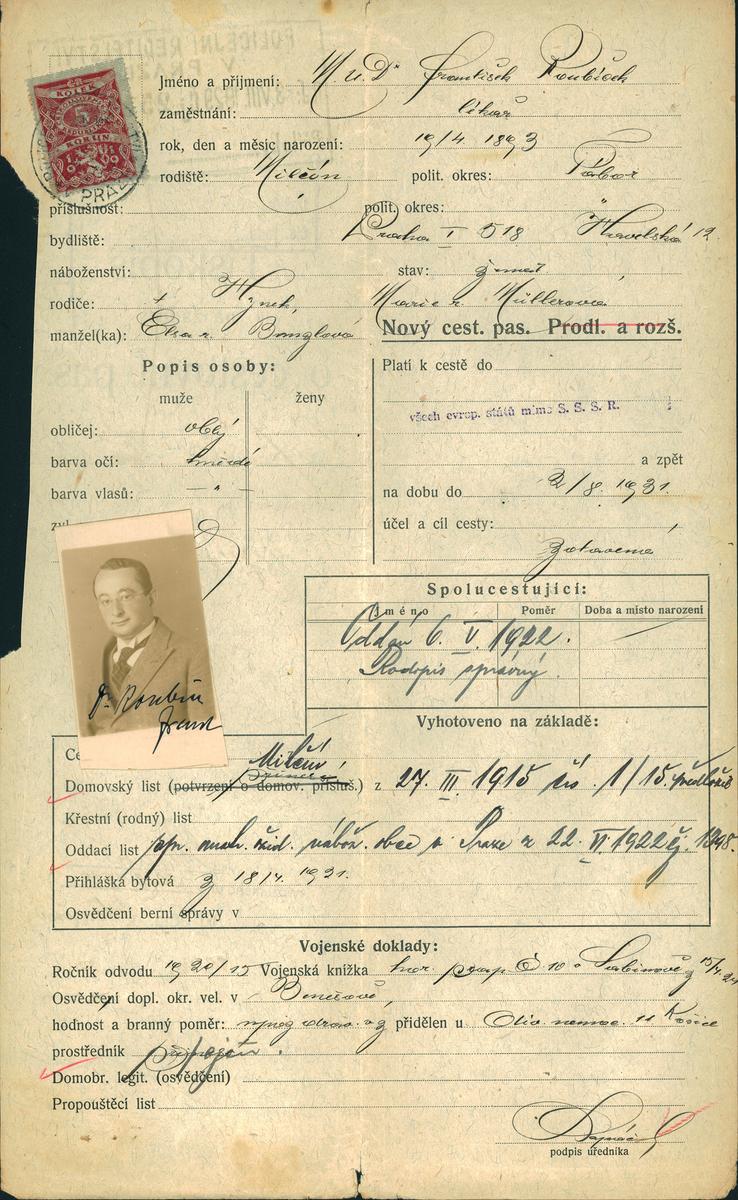 KOLEK
5
KORUN
PRAZE
Jméno a příjmení: MUDr František Roubíček
zaměstnání: lékař
rok, den a měsíc narození: 19/4 1893
rodiště: Milčín polit. okres: Tábor
příslušnost: polit. okres: "
bydliště: Praha I 518 Havelská 12
náboženství: stav: ženat
rodiče: + Hynek, Marie r. Müllerová
manžel(ka): Elsa r.
Nový cest. pas. Prodl. a rozš.
Popis osoby:
muže ženy
obličej: oblý
barva očí: hnědé
barva vlasů: — " —
Platí k cestě do
všech evrop. států mimo S. S. S. R.
a zpět
na dobu do 2/8. 1931.
účel a cíl cesty:
zotavená
Dr Roubíč
Frant
Spolucestující:
Jméno Poměr Doba a místo narození
Oddán 6. V. 1922.
Rodopis správný.
Vyhotoveno na základě:
Milčín
Domovský list (potvrzení o domov. přísluš.) z 27. III. 1915 čís. 1/15 předložil
Křestní (rodný) list
Oddací list žid. nábož. obce v Praze z 22. VI. 1922 č. 1898.
Přihláška bytová z 18/4. 1931.
Osvědčení berní správy v
Vojenské doklady:
Ročník odvodu 1920/15 Vojenská knížka 10 v z 15/4 24
Osvědčení dopl. okr. vel. v Benešově,
hodnost a branný poměr: přidělen u Div. nemoc. 11 Košice
prostředník
Domobr. legit. (osvědčení)
Propouštěcí list
podpis úředníka